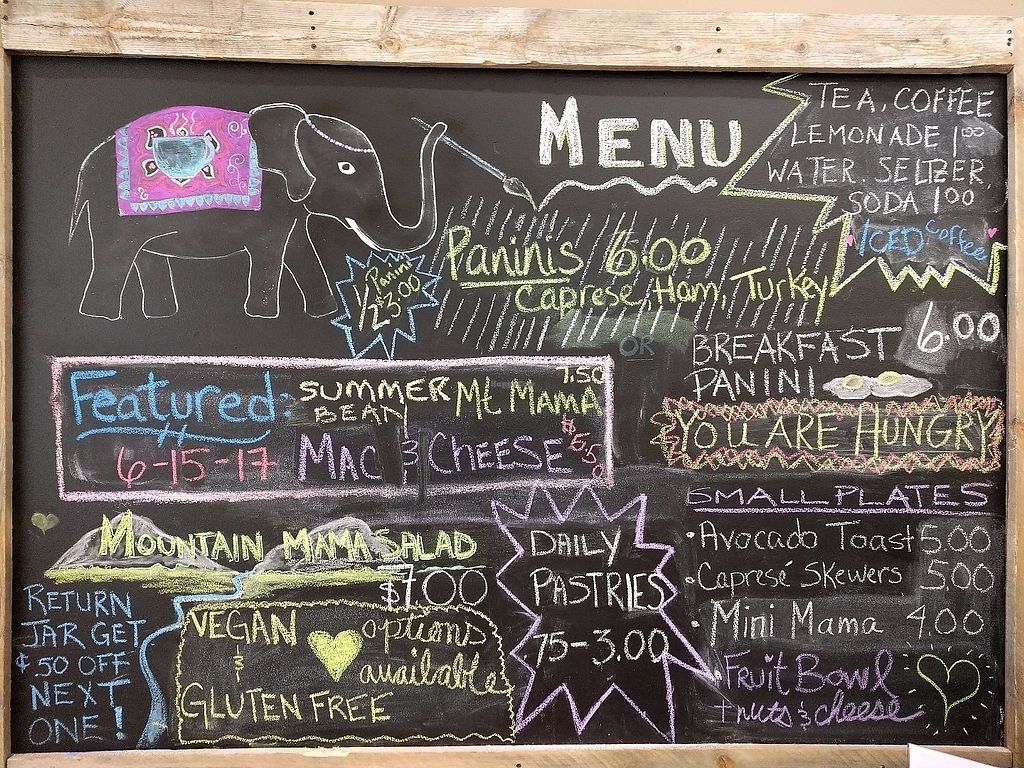 MENU
TEA, COFFEE
LEMONADE 1.00
WATER, SELTZER
SODA 1.00
ICED Coffee
Paninis 6.00
Caprese, Ham, Turkey
1/2 Panini
$3.00
OR
BREAKFAST 6.00
PANINI
YOU ARE HUNGRY
Featured:
6-15-17
SUMMER
BEAN
Mt MAMA 7.50
MAC & CHEESE $5.50
SMALL PLATES
• Avocado Toast 5.00
• Capresé Skewers 5.00
Mini Mama 4.00
Fruit Bowl
+ nuts & cheese
MOUNTAIN MAMA SALAD
$7.00
DAILY
PASTRIES
75-3.00
RETURN
JAR GET
$.50 OFF
NEXT
ONE!
VEGAN
&
GLUTEN FREE
options
available